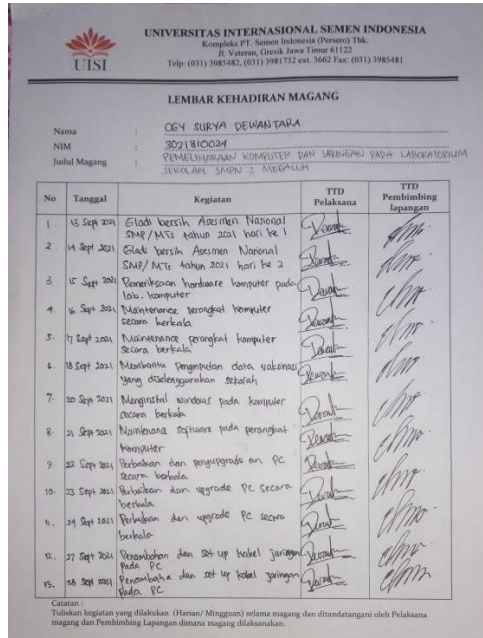 UISI
UNIVERSITAS INTERNASIONAL SEMEN INDONESIA
Kompleks PT. Semen Indonesia (Persero) Tbk.
Jl. Veteran, Gresik Jawa Timur 61122
Telp: (031) 3985482, (031) 3981732 ext. 3662 Fax: (031) 3985481
LEMBAR KEHADIRAN MAGANG
Nama : OGY SURYA DEWANTARA
NIM : 3021810024
Judul Magang : PEMELIHARAAN KOMPUTER DAN JARINGAN PADA LABORATORIUM
SEKOLAH SMPN 2 MEGALUH
No Tanggal Kegiatan TTD Pelaksana TTD Pembimbing lapangan
1. 13 Sept 2021 Gladi bersih Asesmen Nasional
SMP/MTs tahun 2021 hari ke 1
2. 14 Sept 2021 Gladi bersih Asesmen Nasional
SMP/MTs tahun 2021 hari ke 2
3. 15 Sept 2021 Pemeriksaan hardware komputer pada
lab. komputer
4. 16 Sept 2021 Maintenance perangkat komputer
secara berkala
5. 17 Sept 2021 Maintenance perangkat komputer
secara berkala
6. 18 Sept 2021 Membantu penginputan data vaksinasi
yang diselenggarakan sekolah
7. 20 Sept 2021 Menginstal windows pada komputer
secara berkala
8. 21 Sept 2021 Maintenance software pada perangkat
komputer
9. 22 Sept 2021 Perbaikan dan pengupgrade an PC
secara berkala
10. 23 Sept 2021 Perbaikan dan upgrade PC secara
berkala
11. 24 Sept 2021 Perbaikan dan upgrade PC secara
berkala
12. 27 Sept 2021 Penambahan dan set up kabel jaringan
Pada PC
13. 28 Sept 2021 Penambaha dan set up kabel jaringan
Pada PC
Catatan :
Tuliskan kegiatan yang dilakukan (Harian/ Mingguan) selama magang dan ditandatangani oleh Pelaksana
magang dan Pembimbing Lapangan dimana magang dilaksanakan.